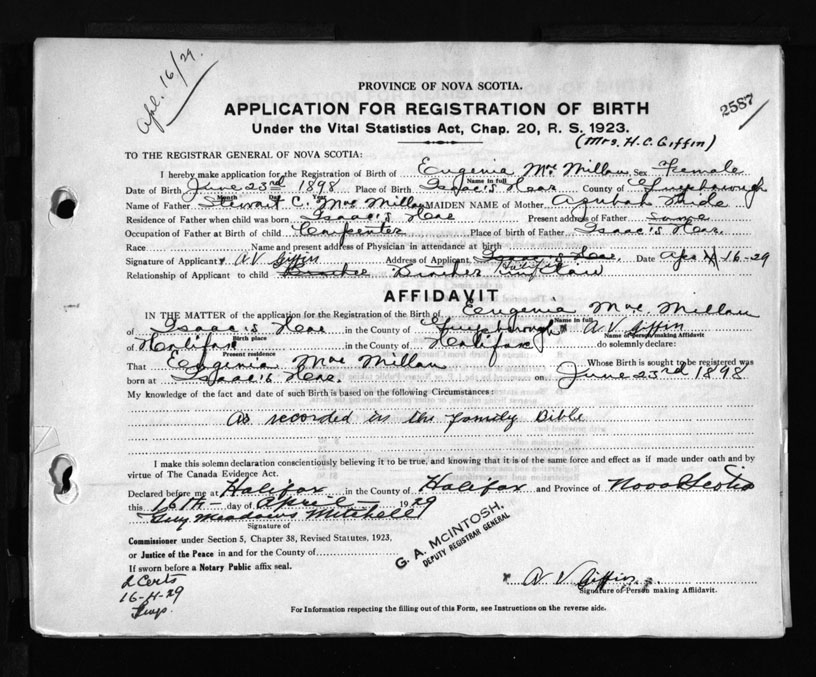 Apl. 16/29.
PROVINCE OF NOVA SCOTIA.
2587
APPLICATION FOR REGISTRATION OF BIRTH
Under the Vital Statistics Act, Chap. 20, R. S. 1923.
(Mrs. H. C. Giffin)
TO THE REGISTRAR GENERAL OF NOVA SCOTIA:
I hereby make application for the Registration of Birth of Eugenia Mac Millan Sex Female
Name in full
Date of Birth June 23rd 1898 Place of Birth Isaac's Har. County of Guysborough
Month Day Year
Name of Father Stewart C. Mac Millan MAIDEN NAME of Mother Azubah
Residence of Father when child was born Isaac's Har Present address of Father Same
Occupation of Father at Birth of child Carpenter Place of birth of Father Isaac's Har.
Race Name and present address of Physician in attendance at birth
Signature of Applicant x A V Giffin Address of Applicant Isaac's Har. Halifax Date Apr 16-29
Relationship of Applicant to child Brother in Law
AFFIDAVIT
IN THE MATTER of the application for the Registration of the Birth of Eugenia Mac Millan
Name in full
of Isaac's Har in the County of Guysborough A V Giffin
Birth place Name of Person making Affidavit
of Halifax in the County of Halifax do solemnly declare:
Present residence
That Eugenia Mac Millan Whose Birth is sought to be registered was
born at Isaac's Har. on June 23rd 1898
My knowledge of the fact and date of such Birth is based on the following Circumstances:
As recorded in the family Bible
I make this solemn declaration conscientiously believing it to be true, and knowing that it is of the same force and effect as if made under oath and by
virtue of The Canada Evidence Act.
Declared before me at Halifax in the County of Halifax and Province of Nova Scotia
this 16th day of April 1929
Guy Meadows Mitchell
Signature of
Commissioner under Section 5, Chapter 38, Revised Statutes, 1923,
or Justice of the Peace in and for the County of
If sworn before a Notary Public affix seal.
G. A. McINTOSH,
DEPUTY REGISTRAR GENERAL
2 Certs
16-4-29
x A V Giffin
Signature of Person making Affidavit.
For Information respecting the filling out of this Form, see Instructions on the reverse side.